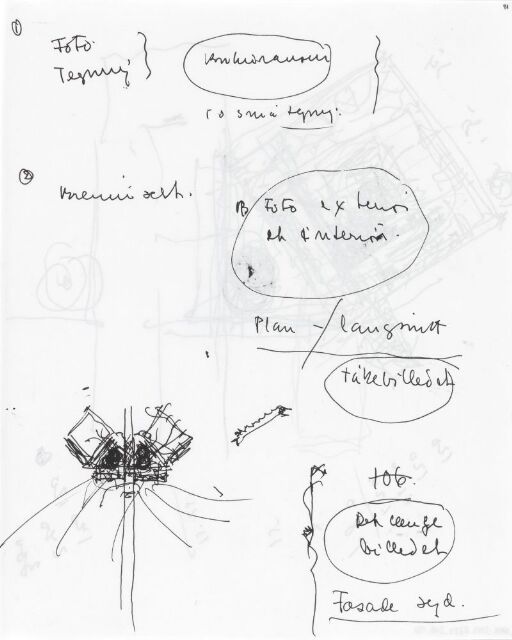 ①
FOTO
Tegning
10 små tegn.
②
B FOTO exteriør
et interiør.
Plan - langsnitt
tåkebilledet
106.
Det lange
billedet
Fasade syd.